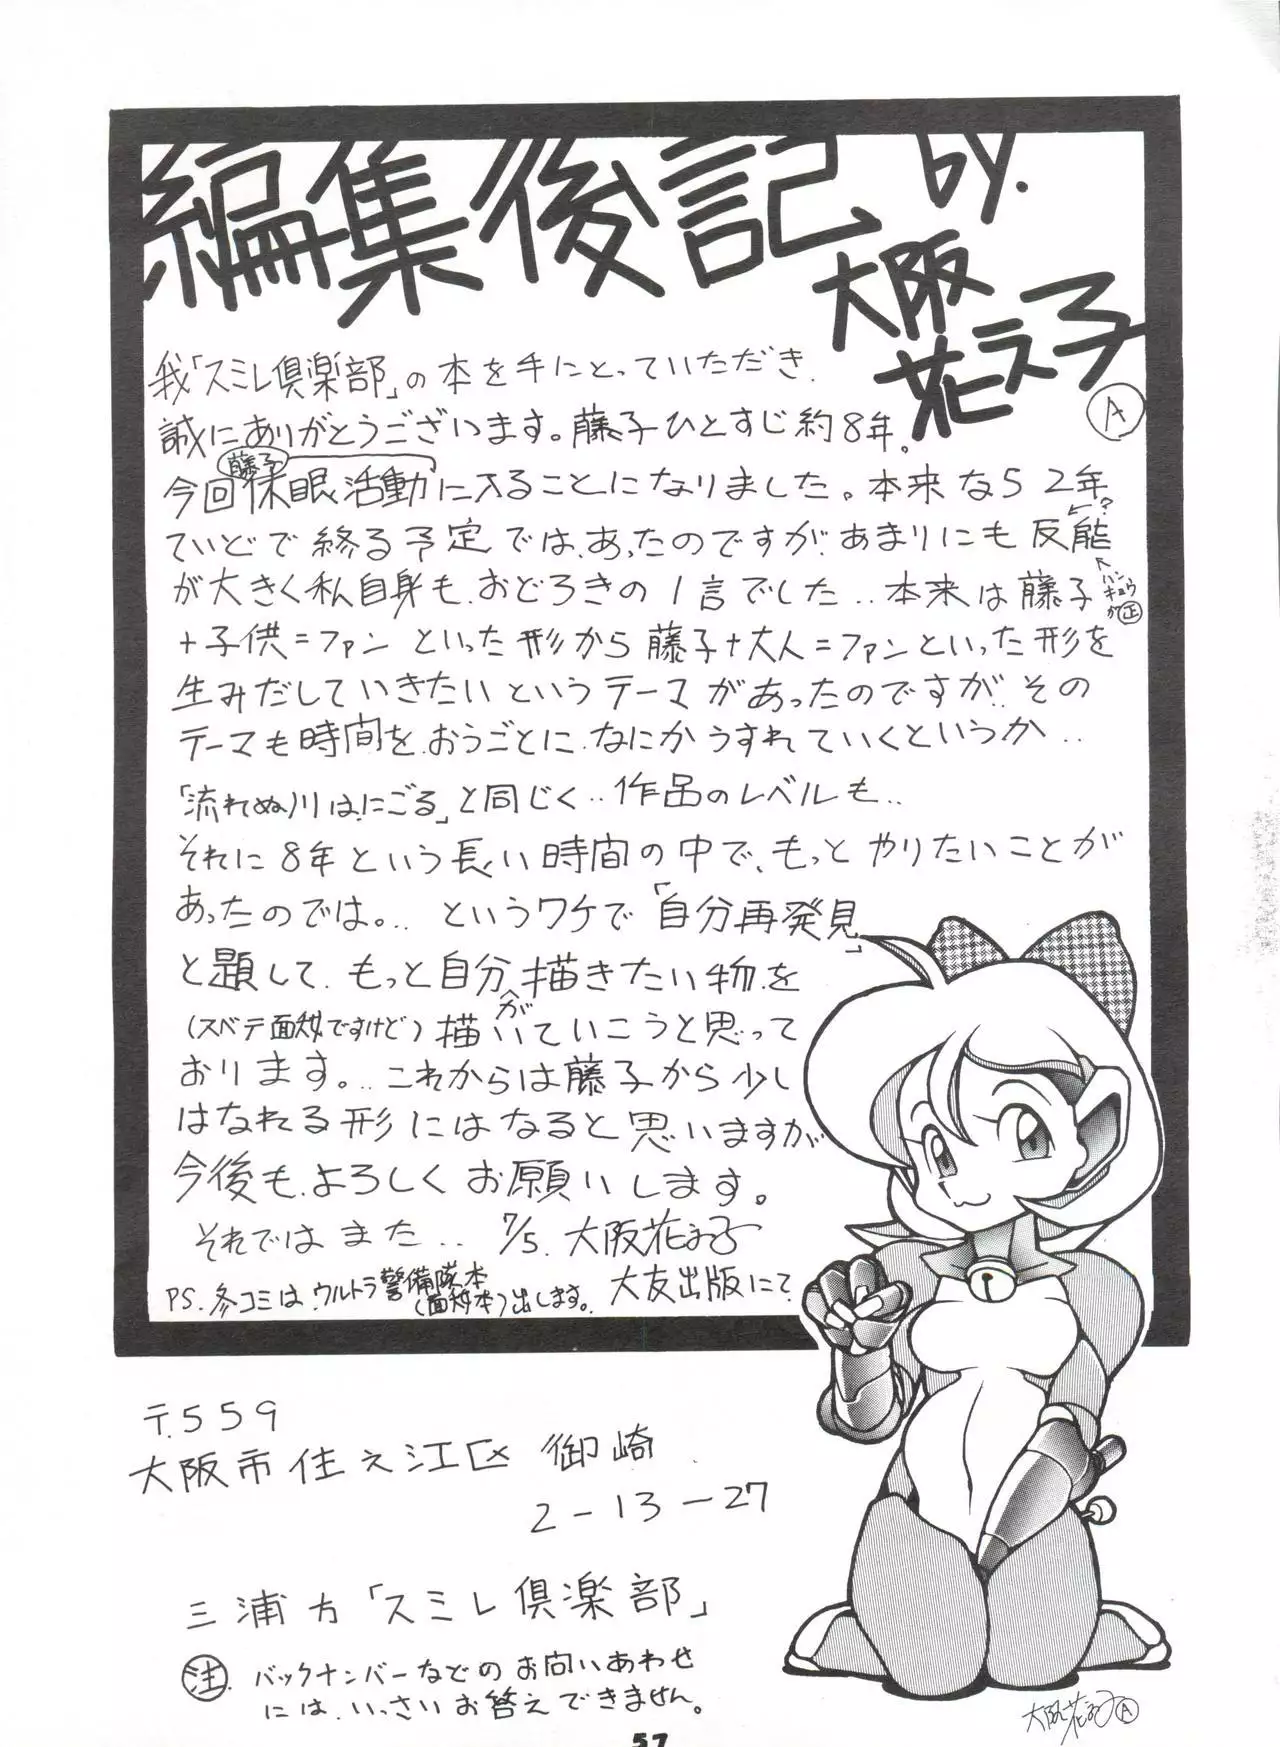 編集後記 by.
大阪
花え子
A
我「スミレ倶楽部」の本を手にとっていただき.
誠にありがとうございます。藤子ひとすじ約8年。
藤子
今回休眠活動に入ることになりました。本来なら2年
ていどで終る予定では、あったのですが、あまりにも反能
←?
ハンキョウが正
が大きく私自身も、おどろきの1言でした‥本来は藤子
+子供=ファン といった形から藤子+大人=ファンといった形を
生みだしていきたいというテーマがあったのですが‥その
テーマも時間を、おうごとに、なにかうすれていくというか‥
「流れぬ川は、にごる」と同じく‥作品のレベルも‥
それに8年という長い時間の中で、もっとやりたいことが
あったのでは。‥というワケで「自分再発見」
と題して、もっと自分が描きたい物を
(スベテ面妖ですけど)描いていこうと思って
おります。‥これからは藤子から少し
はなれる形にはなると思いますが
今後も、よろしくお願いします。
それではまた‥ 7/5. 大阪花え子
大友出版にて
PS. 冬コミは、ウルトラ警備隊本
(面妖本)出します。
〒559
大阪市住之江区御崎
2-13-27
三浦方「スミレ倶楽部」
注 バックナンバーなどのお問いあわせ
には、いっさいお答えできません。
大阪花え子 A
57